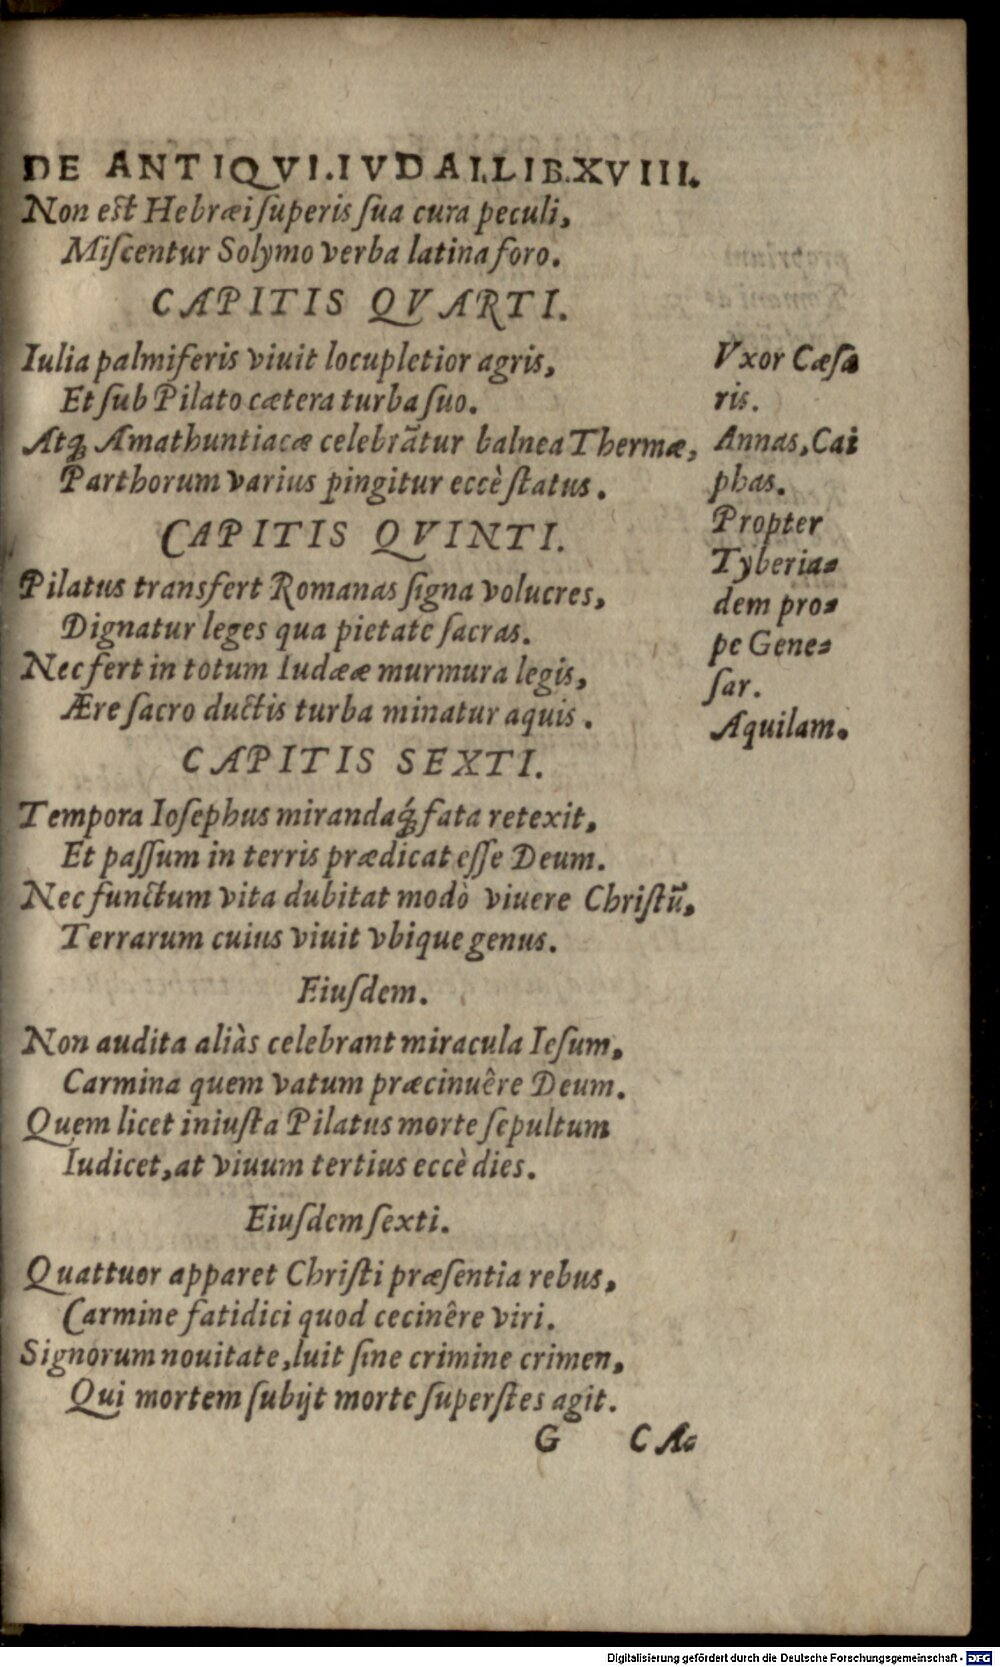 DE ANTIQVI.IVDAI.LIB.XVIII.
Non est Hebræi ſuperis ſua cura peculi,
Miſcentur Solymo verba latina foro.
CAPITIS QVARTI.
Iulia palmiferis viuit locupletior agris,
Et ſub Pilato cætera turba ſuo.
Atq; Amathuntiacæ celebrãtur balnea Thermæ,
Parthorum varius pingitur eccè ſtatus.
CAPITIS QVINTI.
Pilatus transfert Romanas ſigna volucres,
Dignatur leges qua pietate ſacras.
Nec fert in totum Iudææ murmura legis,
Ære ſacro ductis turba minatur aquis.
CAPITIS SEXTI.
Tempora Ioſephus mirandaq́; fata retexit,
Et paſſum in terris prædicat eſſe Deum.
Nec functum vita dubitat modò viuere Chriſtũ,
Terrarum cuius viuit vbique genus.
Eiuſdem.
Non audita aliàs celebrant miracula Ieſum,
Carmina quem vatum præcinuêre Deum.
Quem licet iniuſta Pilatus morte ſepultum
Iudicet, at viuum tertius eccè dies.
Eiuſdem ſexti.
Quattuor apparet Chriſti præſentia rebus,
Carmine fatidici quod cecinêre viri.
Signorum nouitate, luit ſine crimine crimen,
Qui mortem ſubijt morte ſuperſtes agit.
G CA-
Vxor Cæſa
ris.
Annas, Cai
phas.
Propter
Tyberia-
dem pro-
pe Gene-
ſar.
Aquilam.
Digitalisierung gefördert durch die Deutsche Forschungsgemeinschaft - DFG